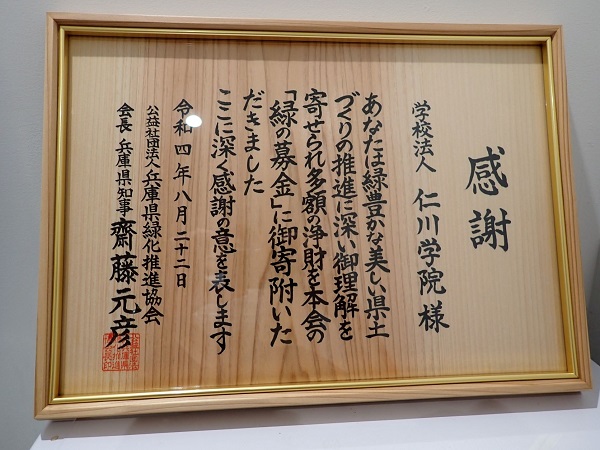 感謝
学校法人 仁川学院 様
あなたは緑豊かな美しい県土
づくりの推進に深い御理解を
寄せられ多額の浄財を本会の
「緑の募金」に御寄附いた
だきました
ここに深く感謝の意を表します
令和四年八月二十二日
公益社団法人兵庫県緑化推進協会
会長 兵庫県知事 齋藤元彦